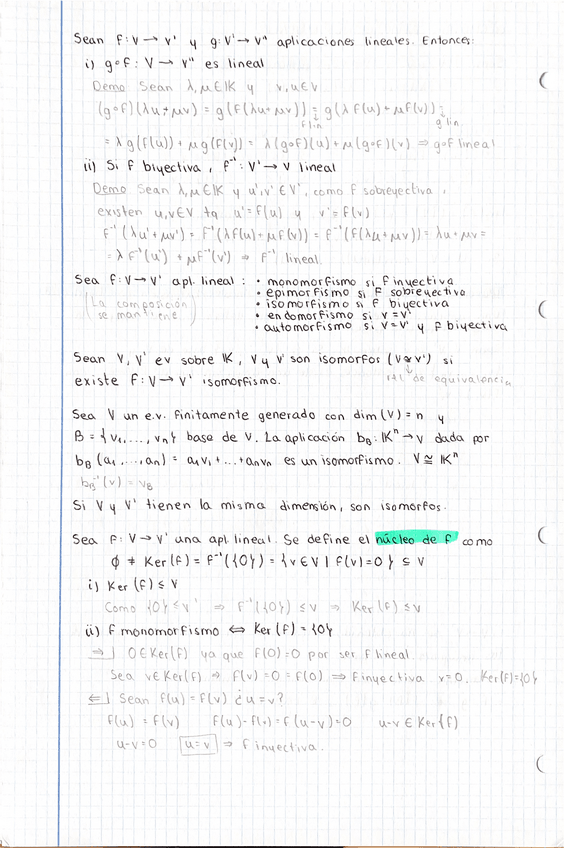 Sean f: V → V' y g: V' → V'' aplicaciones lineales. Entonces:
i) g∘f: V → V'' es lineal
Demo Sean λ, μ ∈ 𝕂 y v, u ∈ V
(g∘f)(λu + μv) = g(f(λu + μv)) = g(λ f(u) + μ f(v)) =
f lin g lin.
= λ g(f(u)) + μ g(f(v)) = λ(g∘f)(u) + μ(g∘f)(v) ⇒ g∘f lineal
ii) Si f biyectiva, f⁻¹: V' → V lineal
Demo Sean λ, μ ∈ 𝕂 y u', v' ∈ V', como f sobreyectiva,
existen u, v ∈ V tq u' = f(u) y v' = f(v)
f⁻¹(λu' + μv') = f⁻¹(λf(u) + μf(v)) = f⁻¹(f(λu + μv)) = λu + μv =
= λ f⁻¹(u') + μ f⁻¹(v') ⇒ f⁻¹ lineal.
Sea f: V → V' apl. lineal: • monomorfismo si f inyectiva
• epimorfismo si f sobreyectiva
(La composición • isomorfismo si f biyectiva
se mantiene) • endomorfismo si V = V'
• automorfismo si V = V' y f biyectiva
Sean V, V' ev sobre 𝕂, V y V' son isomorfos (V ≅ V') si
existe f: V → V' isomorfismo. rel de equivalencia
Sea V un e.v. finitamente generado con dim(V) = n y
B = {v₁, ..., vₙ} base de V. La aplicación b_B: 𝕂ⁿ → V dada por
b_B(a₁, ..., aₙ) = a₁v₁ + ... + aₙvₙ es un isomorfismo. V ≅ 𝕂ⁿ
b_B⁻¹(v) = v_B
Si V y V' tienen la misma dimensión, son isomorfos.
Sea f: V → V' una apl. lineal. Se define el núcleo de f como
∅ ≠ Ker(f) = f⁻¹({0}) = {v ∈ V | f(v) = 0} ⊆ V
i) Ker(f) ≤ V
Como {0} ≤ V' ⇒ f⁻¹({0}) ≤ V ⇒ Ker(f) ≤ V
ii) f monomorfismo ⇔ Ker(f) = {0}
⇒| 0 ∈ Ker(f) ya que f(0) = 0 por ser f lineal
Sea v ∈ Ker(f) ⇒ f(v) = 0 = f(0) ⇒ f inyectiva v = 0. Ker(f) = {0}
⇐| Sean f(u) = f(v) ¿u = v?
f(u) = f(v) f(u) - f(v) = f(u-v) = 0 u-v ∈ Ker(f)
u-v = 0 u = v ⇒ f inyectiva.